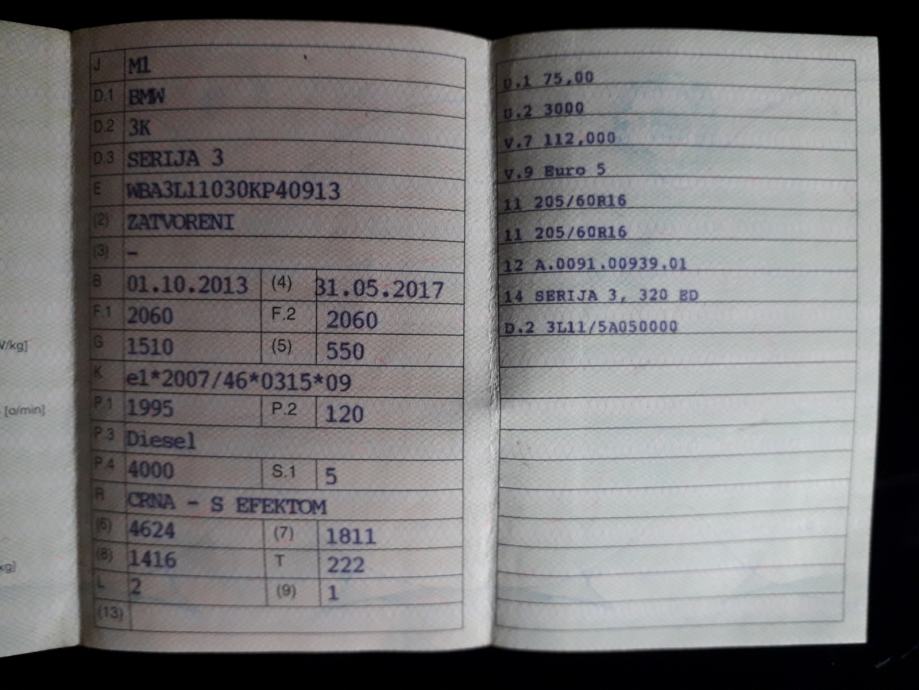 J M1
D.1 BMW
D.2 3K
D.3 SERIJA 3
E WBA3L11030KP40913
(2) ZATVORENI
(3) -
B 01.10.2013 (4) 31.05.2017
F.1 2060 F.2 2060
G 1510 (5) 550
K e1*2007/46*0315*09
P.1 1995 P.2 120
P.3 Diesel
P.4 4000 S.1 5
R CRNA - S EFEKTOM
(6) 4624 (7) 1811
(8) 1416 T 222
L 2 (9) 1
(13)
U.1 75,00
U.2 3000
V.7 112,000
V.9 Euro 5
11 205/60R16
11 205/60R16
12 A.0091.00939.01
14 SERIJA 3, 320 ED
D.2 3L11/5A050000
/kg]
[o/min]
kg]